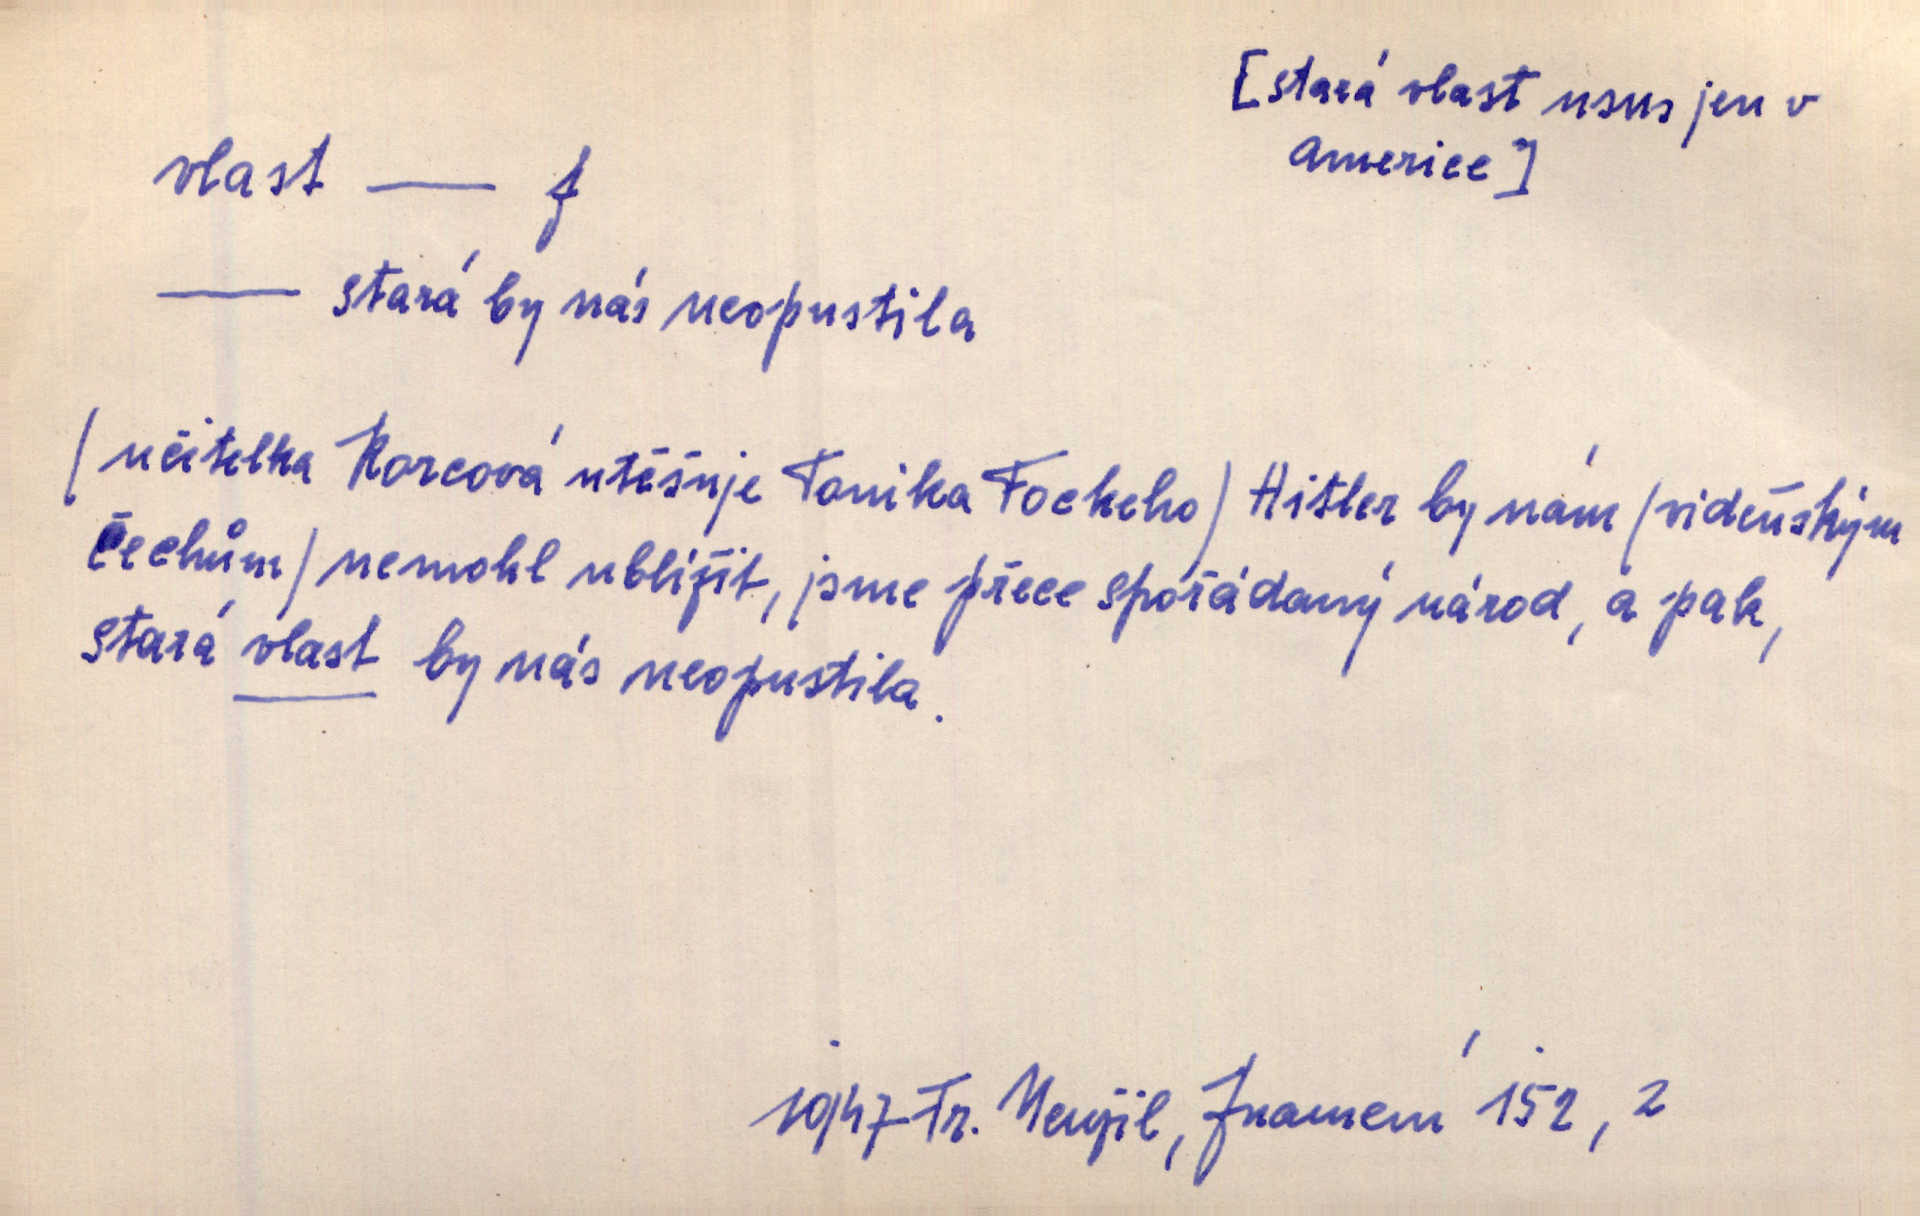 [stará vlast usus jen v
Americe]
vlast — f
— stará by nás neopustila
/učitelka Korcová utěšuje Toníka Fockeho/ Hitler by nám /vídeňským
Čechům/ nemohl ublížit, jsme přece spořádaný národ, a pak,
stará vlast by nás neopustila.
1947 Fr. Neužil, Znamení 152, 2